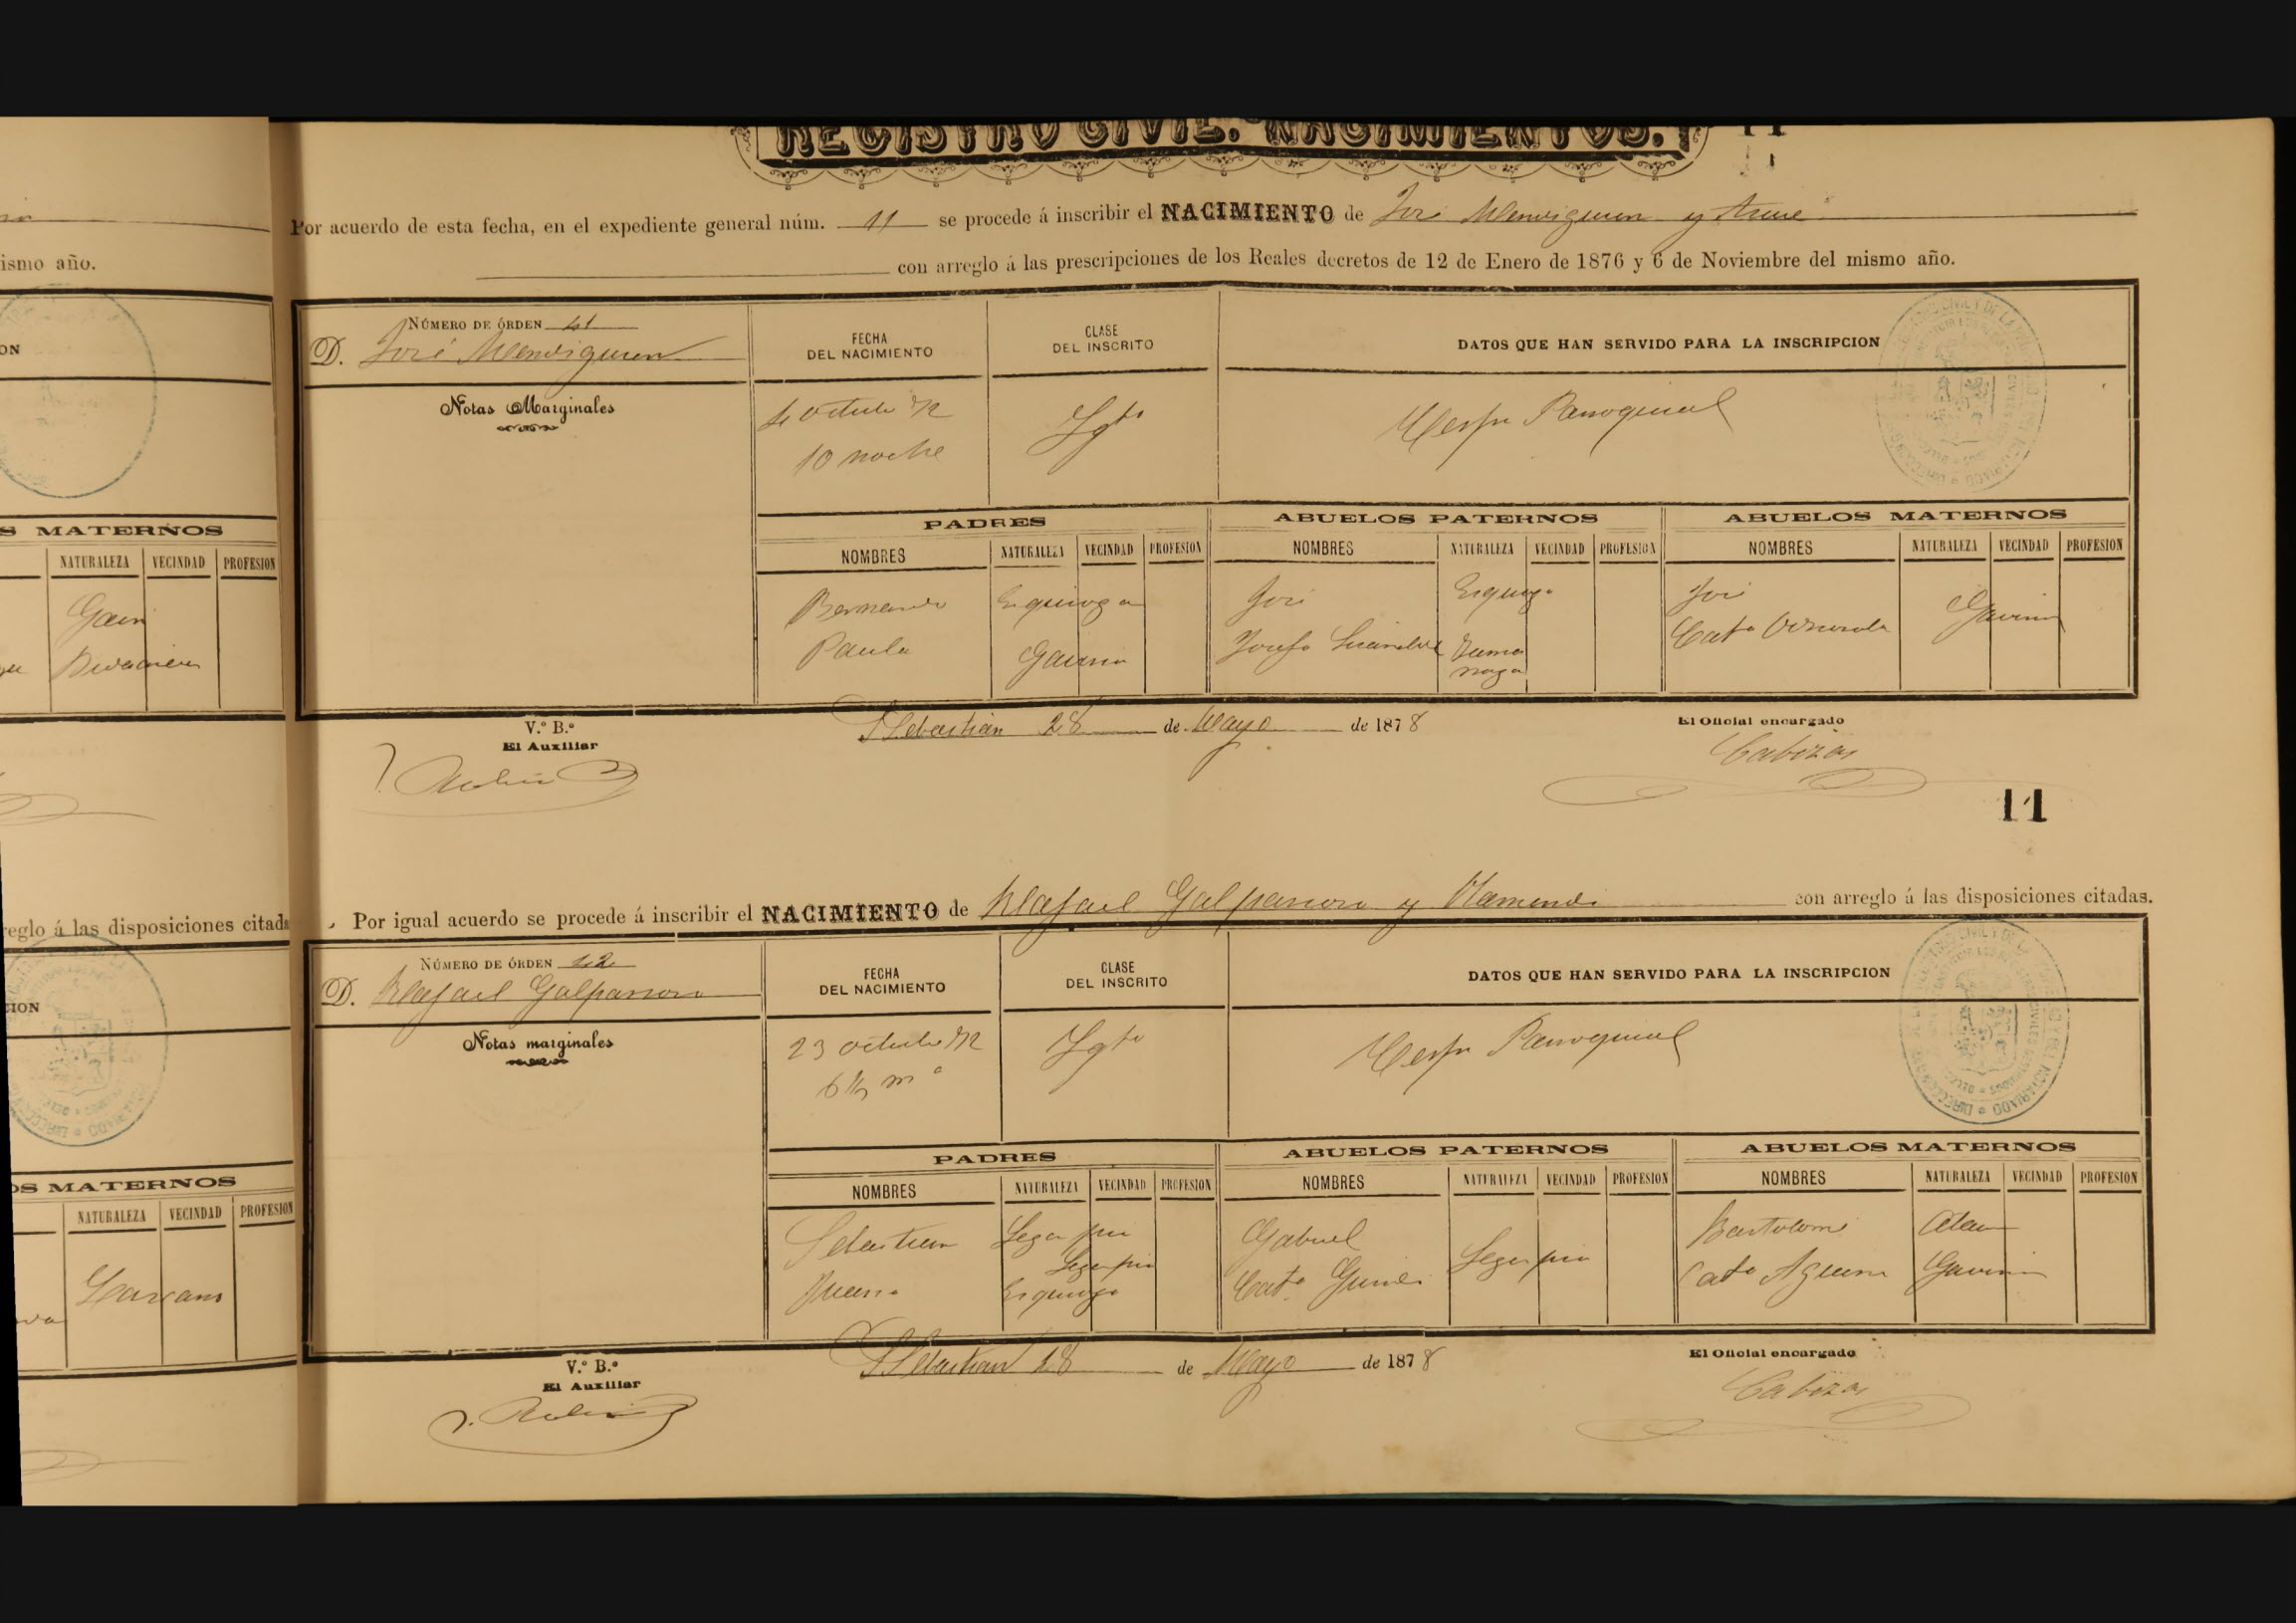 REGISTRO CIVIL. NACIMIENTOS. 11
Por acuerdo de esta fecha, en el expediente general núm. 11 se procede á inscribir el NACIMIENTO de José Mendiguren y
con arreglo á las prescripciones de los Reales decretos de 12 de Enero de 1876 y 6 de Noviembre del mismo año.
ismo año.
NÚMERO DE ÓRDEN
D. José Mendiguren
FECHA DEL NACIMIENTO
CLASE DEL INSCRITO
DATOS QUE HAN SERVIDO PARA LA INSCRIPCION
Notas Marginales
4 Octubre 72
10 noche
Lgto
Certfn Parroquial
PADRES ABUELOS PATERNOS ABUELOS MATERNOS
NOMBRES NATURALEZA VECINDAD PROFESION NOMBRES NATURALEZA VECINDAD PROFESION NOMBRES NATURALEZA VECINDAD PROFESION
Bernardo Esquioga José Esquioga José Gaviria
Paula Gaviria Josefa Zumarraga Cata
S MATERNOS
NATURALEZA VECINDAD PROFESION
V.º B.º
El Auxiliar
S Sebastian 28 de Mayo de 1878
El Oficial encargado
Cabezas
11
Por igual acuerdo se procede á inscribir el NACIMIENTO de Rafael Galparsoro y Alamendi con arreglo á las disposiciones citadas.
reglo á las disposiciones citada
NÚMERO DE ÓRDEN 12
D. Rafael Galparsoro
FECHA DEL NACIMIENTO
CLASE DEL INSCRITO
DATOS QUE HAN SERVIDO PARA LA INSCRIPCION
Notas marginales
23 octubre 72
6 ½ mª
Lgto
Certfn Parroquial
PADRES ABUELOS PATERNOS ABUELOS MATERNOS
NOMBRES NATURALEZA VECINDAD PROFESION NOMBRES NATURALEZA VECINDAD PROFESION NOMBRES NATURALEZA VECINDAD PROFESION
Sebastian Legazpia Gabriel Legazpia Bartolomé Ataun
Juana Esquioga Cata Cata Gaviria
OS MATERNOS
NATURALEZA VECINDAD PROFESION
Lazcano
V.º B.º
El Auxiliar
S Sebastian 28 de Mayo de 1878
El Oficial encargado
Cabezas